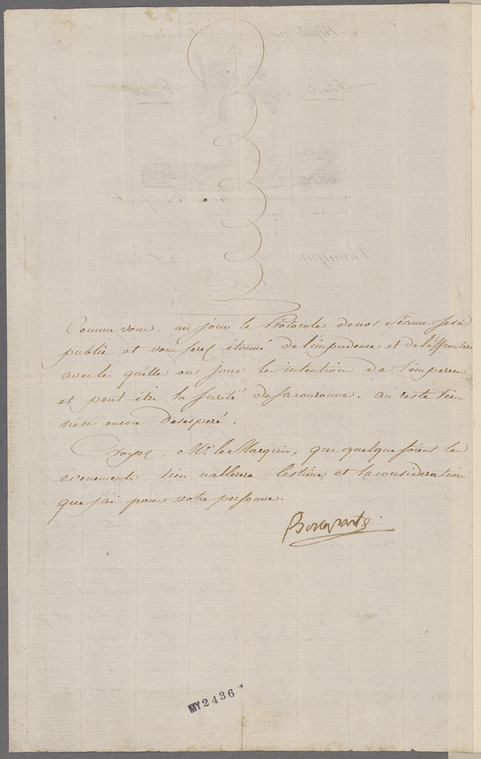 Comme vous. un jour le Protocole de nos Séances sera
publié et vous serez étonné de l'impudence et de l'effronterie
avec la quelle on joue les intentions de l'empereur
et peut être la sureté de sa couronne. au reste rien
n'est encore désespéré.
Croyez, Mr. le Marquis, que quelque soient les
evenements rien n'altérera l'estime et la considération
que j'ai pour votre personne.
Bonaparte
MY2436